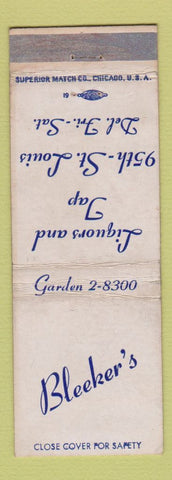 SUPERIOR MATCH CO., CHICAGO, U.S.A.
19
Liquors and
Tap
95th - St. Louis
Del. Fri. - Sat.
Garden 2-8300
Bleeker's
CLOSE COVER FOR SAFETY